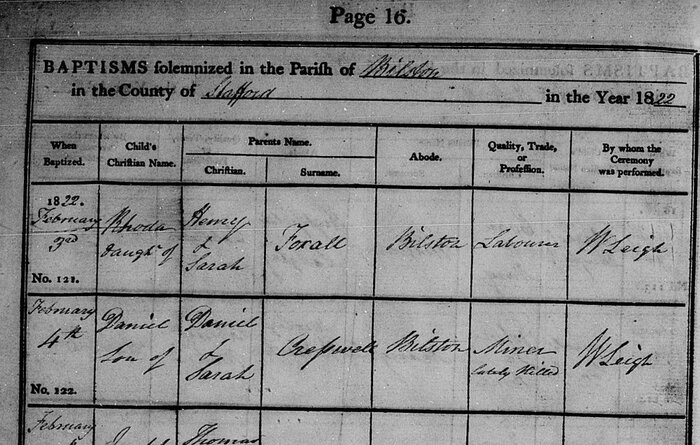 Page 16.
BAPTISMS solemnized in the Parish of Bilston
in the County of Stafford in the Year 1822
When Baptized.
Child's Christian Name.
Parents Name.
Christian.
Surname.
Abode.
Quality, Trade, or Profession.
By whom the Ceremony was performed.
1822.
February
3rd
No. 121.
Rhoda
Daughr of
Henry
&
Sarah
Foxall
Bilston
Labourer
W Leigh
February
4th
No. 122.
Daniel
Son of
Daniel
&
Sarah
Cresswell
Bilston
Miner
lately killed
W Leigh
February
Thomas